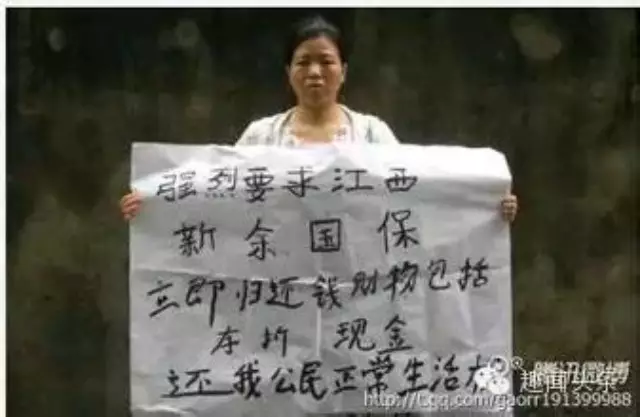 强烈要求江西
新余国保
立即归还钱财物包括
存折 现金
还我公民正常生活
趣面头条
http://t.qq.com/gaorr191399988